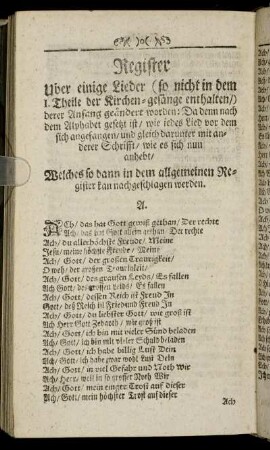 Register
Uber einige Lieder (so nicht in dem
I. Theile der Kirchen-gesänge enthalten/)
derer Anfang geändert worden: Da denn nach
dem Alphabet gesetzt ist/ wie iedes Lied vor dem
sich angefangen/ und gleich darunter mit an-
derer Schrifft/ wie es sich nun
anhebt/
Welches so dann in dem allgemeinen Re-
gister kan nachgeschlagen werden.
A.
ACh/ das hat Gott gewiß gethan/ Der rechte
Ach/ das hat Gott allein gethan Der rechte
Ach/ du allerhöchste Freude/ Meine
Jesu/ meine höchste Freude/ Meine
Ach/ Gott/ der grossen Traurigkeit/
O weh/ der großen
Ach/ Gott/ des grausen Leyds/ Es fallen
Ach Gott/ des grossen Leids/ Es fallen
Ach/ Gott/ dessen Reich ist Freud In
Gott/ deß Reich ist Fried und Freud In
Ach/ Gott/ du liebster Gott/ wie groß ist
Ach Herr Gott Zebaoth/ wie groß ist
Ach/ Gott/ ich bin mit vieler Sünd beladen
Ach/ Gott/ ich bin mit vieler Schuld beladen
Ach/ Gott/ ich habe billig Lust Dein
Ach/ Gott/ ich habe zwar wohl Lust Dein
Ach/ Gott/ in viel Gefahr und Noth Wir
Ach/ Herr/ weil in so grosser Noth Wir
Ach/ Gott/ mein einger Trost auf dieser
Ach/ Gott/ mein höchster Trost auf dieser
Ach/